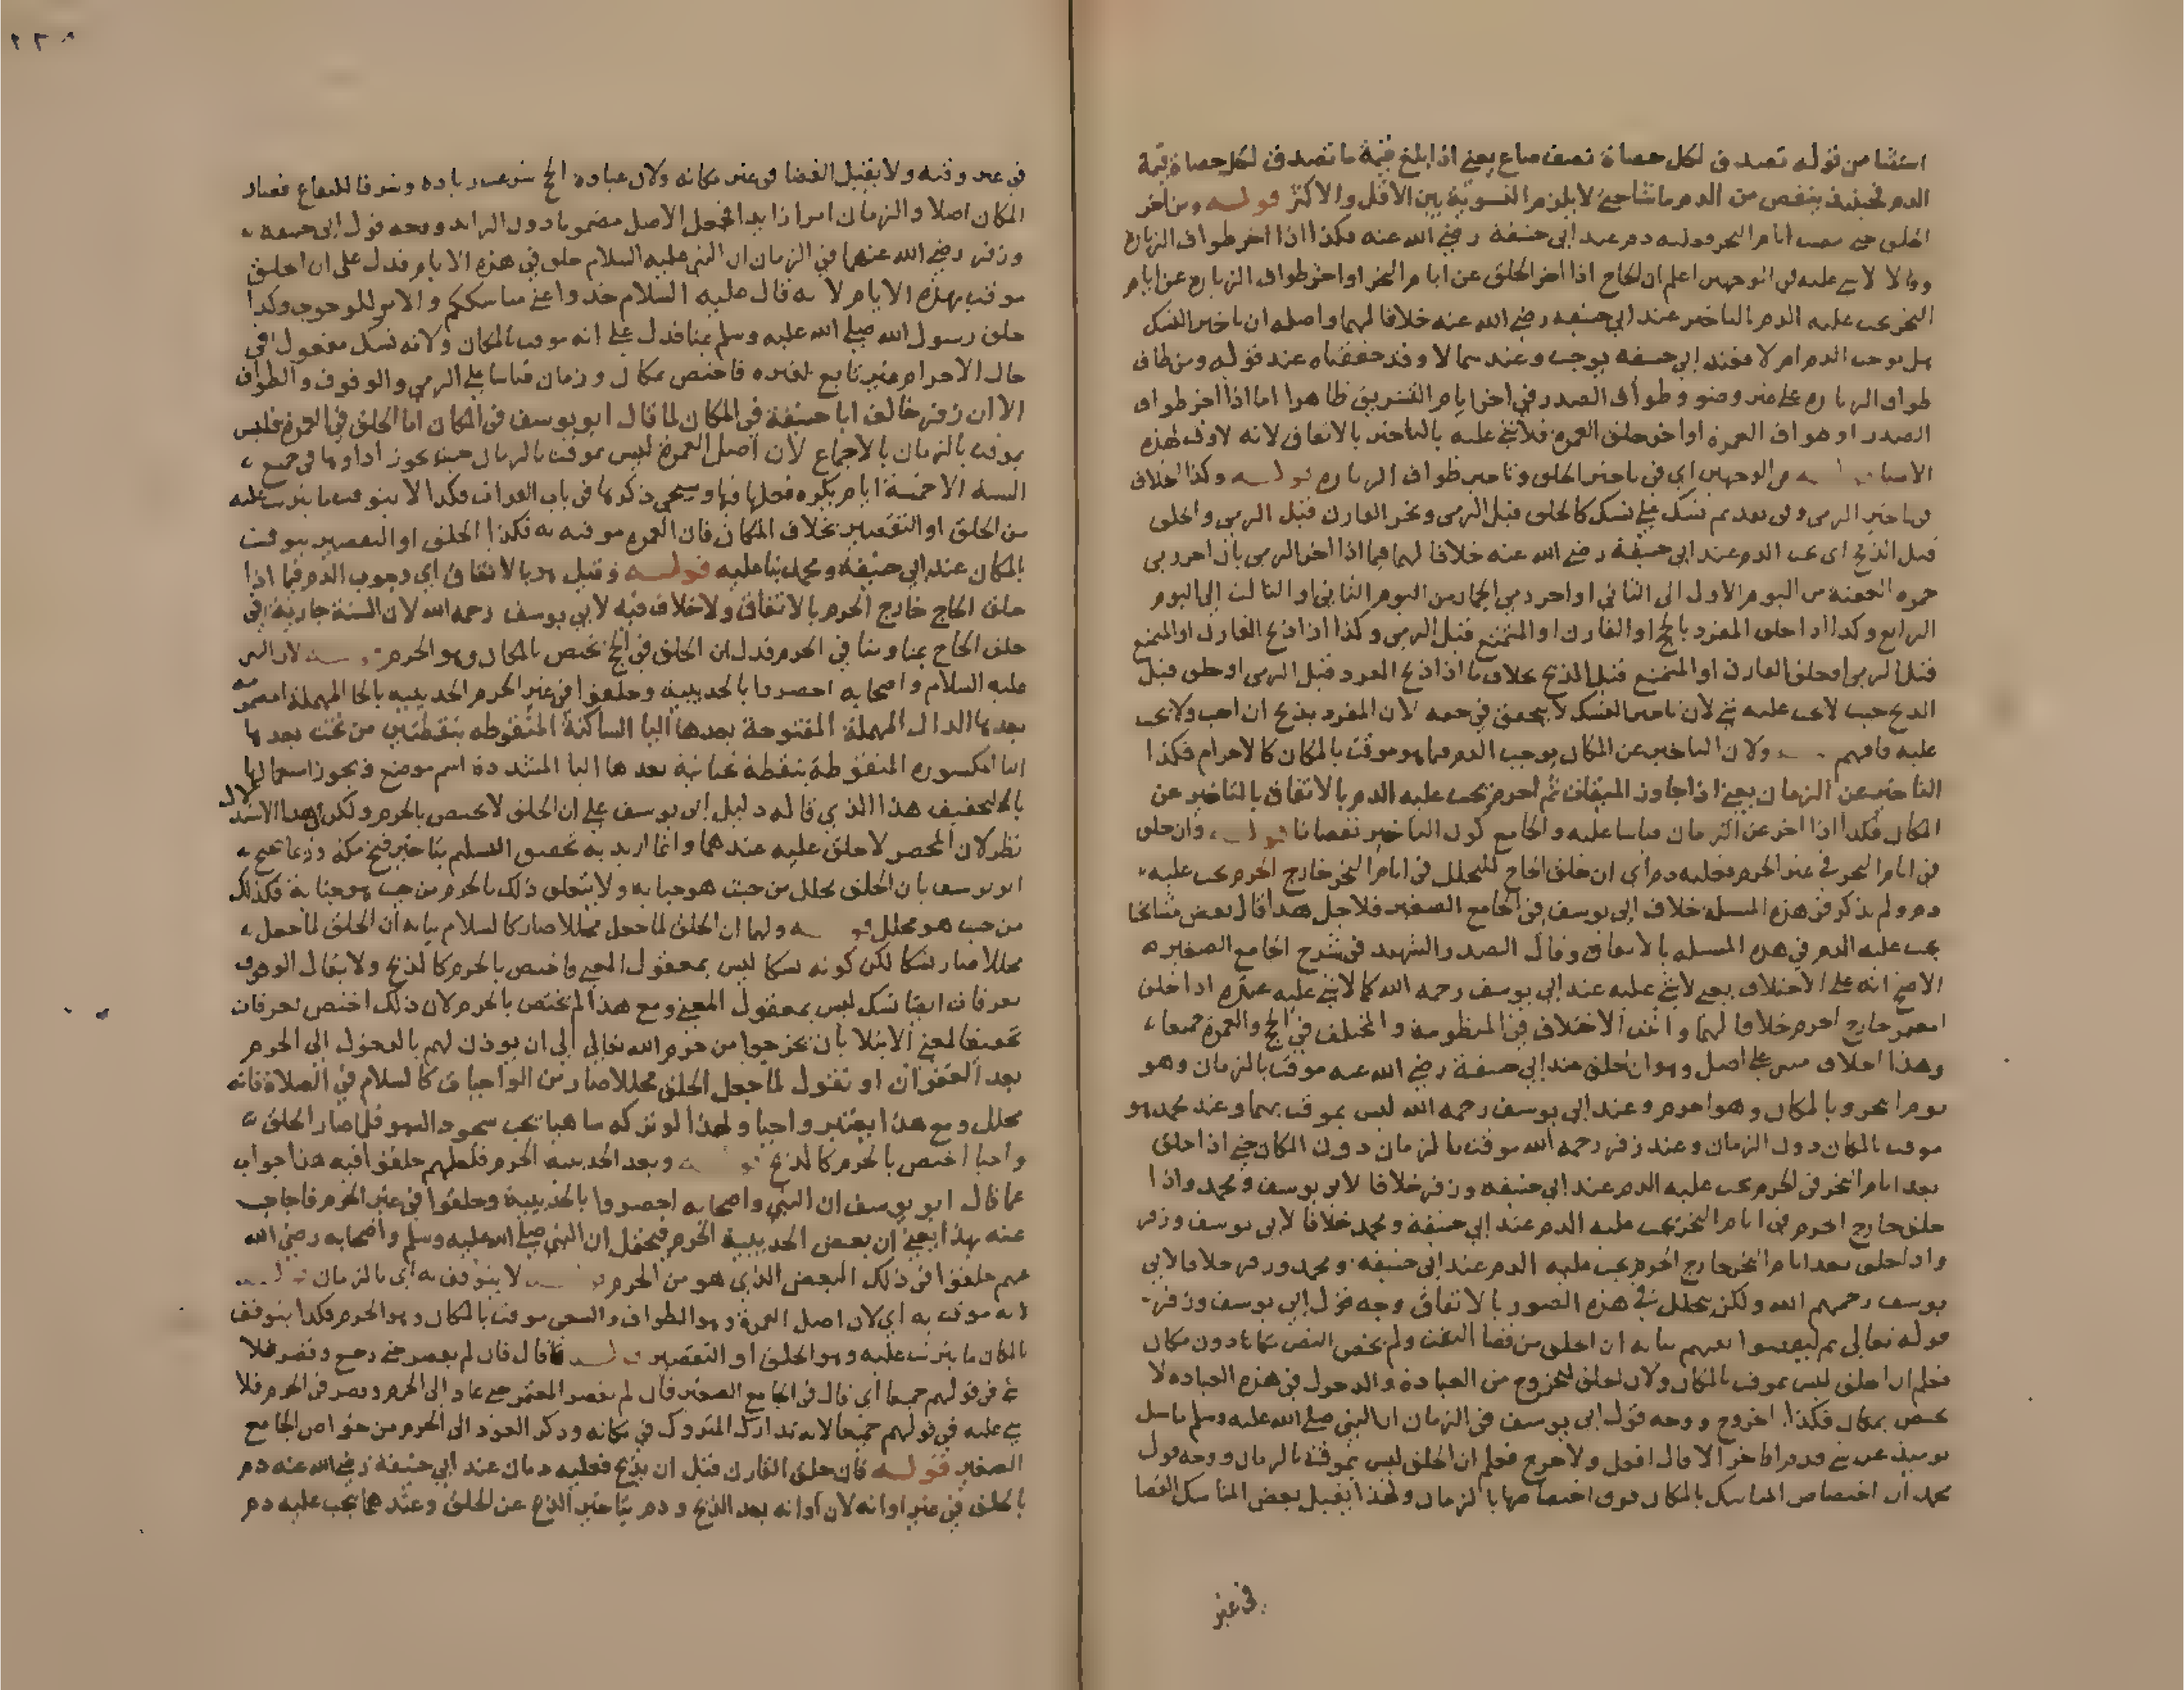 استثنا من قوله تصدق لكل حصاة نصف صاع يعني اذا بلغ قيمة ما تصدق لكل حصاة قيمة
الدم فحينئذ ينقص من الدم ما شا حتى لا يلزم التسوية بين الاقل والاكثر قوله ومن اخر
الحلق حتى مضت ايام النحر فعليه دم عند ابي حنيفة رضي الله عنه وكذا اذا اخر طواف الزيارة
وقالا لا شي عليه في الوجهين اعلم ان الحاج اذا اخر الحلق عن ايام النحر او اخر طواف الزيارة عن ايام
النحر يجب عليه الدم بالتاخير عند ابي حنيفه رضي الله عنه خلافا لهما واصله ان تاخير النسك
هل يوجب الدم ام لا فعند ابي حنيفه يوجب وعندهما لا وقد حققناه عند قوله ومن طاف
طواف الزيارة على غير وضو وطواف الصدر في اخر ايام التشريق طاهرا اما اذا اخر طواف
الصدر او طواف العمرة او اخر حلق العمرة فلا شي عليه بالتاخير بالاتفاق لانه لا وقت لهذه
الاشيا في الوجهين اي في تاخير الحلق وتاخير طواف الزيارة قوله وكذا الخلاف
في تاخير الرمي وفي تقديم نسك على نسك كالحلق قبل الرمي ونحر القارن قبل الرمي والحلق
قبل الذبح اي يجب الدم عند ابي حنيفة رضي الله عنه خلافا لهما فيما اذا اخر الرمي بان اخر رمي
جمرة العقبة من اليوم الاول الى الثاني او اخر رمي الجمار من اليوم الثاني او الثالث الى اليوم
الرابع وكذا اذا حلق المفرد بالحج او القارن او المتمتع قبل الرمي وكذا اذا ذبح القارن او المتمتع
قبل الرمي او حلق القارن او المتمتع قبل الذبح بخلاف ما اذا ذبح المفرد قبل الرمي او حلق قبل
الذبح حيث لا يجب عليه شي لان تاخير النسك لا يتحقق في حقه لان المفرد يذبح ان احب ولا يجب
عليه فافهم ولان التاخير عن المكان يوجب الدم فيما هو موقت بالمكان كالاحرام فكذا
التاخير عن الزمان يعني اذا جاوز الميقات ثم احرم يجب عليه الدم بالاتفاق بالتاخير عن
المكان فكذا اذا اخر عن الزمان قياسا عليه والجامع كون التاخير نقصانا قوله وان حلق
في ايام النحر في غير الحرم فعليه دم اي ان حلق الحاج للتحلل في ايام النحر خارج الحرم يجب عليه
دم ولم يذكر في هذه المسلة خلاف ابي يوسف في الجامع الصغير فلاجل هذا قال بعض مشايخنا
يجب عليه الدم في هذه المسله بالاتفاق وقال الصدر الشهيد في شرح الجامع الصغير
الاصح انه على الاختلاف يعني لا شي عليه عند ابي يوسف رحمه الله كما لا شي عليه عنده اذا حلق
المعتمر خارج الحرم خلافا لهما واثبت الاختلاف في المنظومة والمختلف في الحج والعمرة جميعا
وهذا الخلاف مبني على اصل وهو ان الحلق عند ابي حنيفة رضي الله عنه موقت بالزمان وهو
يوم النحر وبالمكان وهو الحرم وعند ابي يوسف رحمه الله ليس بموقت بهما وعند محمد هو
موقت بالمكان دون الزمان وعند زفر رحمه الله موقت بالزمان دون المكان حتى اذا حلق
بعد ايام النحر في الحرم يجب عليه الدم عند ابي حنيفه وزفر خلافا لابي يوسف ومحمد واذا
حلق خارج الحرم في ايام النحر يجب عليه الدم عند ابي حنيفة ومحمد خلافا لابي يوسف وزفر
واذا حلق بعد ايام النحر خارج الحرم يجب عليه الدم عند ابي حنيفه ومحمد وزفر خلافا لابي
يوسف رحمهم الله ولكن يتحلل في هذه الصور بالاتفاق وجه قول ابي يوسف وزفر
قوله تعالى ثم ليقضوا تفثهم بيانه ان الحلق من قضا التفث ولم يخص النص مكانا دون مكان
فعلم ان الحلق ليس بموقت بالمكان ولان الحلق للخروج من العبادة والدخول في هذه العباده لا
يختص بمكان فكذا الخروج ووجه قول ابي يوسف في الزمان ان النبي صلى الله عليه وسلم ما سئل
يوميذ عن شي قدم او اخر الا قال افعل ولا حرج فعلم ان الحلق ليس بموقت بالزمان ووجه قول
محمد ان اختصاص المناسك بالمكان فوق اختصاصها بالزمان ولهذا يقبل بعض المناسك القضا
في غير
٢٢٨
في غير وقته ولا يقبل القضا في غير مكانه ولان عبادة الحج شرعت زيادة وشرفا للبقاع فصار
المكان اصلا والزمان امرا زايدا فجعل الاصل مضمونا دون الزايد ووجه قول ابي حنيفة
وزفر رضي الله عنهما في الزمان ان النبي عليه السلام حلق في هذه الايام فدل على ان الحلق
موقت بهذه الايام لانه قال عليه السلام خذوا عني مناسككم والامر للوجوب وكذا
حلق رسول الله صلى الله عليه وسلم بمنا فدل على انه موقت بالمكان ولانه نسك مفعول في
حال الاحرام غير تابع لغيره فاختص بمكان وزمان قياسا على الرمي والوقوف والطواف
الا ان زفر خالف ابا حنيفة في المكان لما قال ابو يوسف في المكان اما الحلق في العمرة فليس
بموقت بالزمان بالاجماع لان اصل العمرة ليس بموقت بالزمان حيث يجوز اداوها في جميع
السنة الا خمسة ايام يكره فعلها فيها وسيجي ذكرها في باب الفوات فكذا لا يتوقت ما يترتب عليه
من الحلق او التقصير بخلاف المكان فان العمرة موقتة به فكذا الحلق او التقصير يتوقت
بالمكان عند ابي حنيفة ومحمد بنا عليه قوله وقيل هو بالاتفاق اي وجوب الدم فيما اذا
حلق الحاج خارج الحرم بالاتفاق ولا خلاف فيه لابي يوسف رحمه الله لان السنة جارية في
حلق الحاج بمنا ومنا في الحرم فدل ان الحلق في الحج يختص بالمكان وهو الحرم قوله لان النبي
عليه السلام واصحابه احصروا بالحديبية وحلقوا في غير الحرم الحديبيه بالحا المهملة المضمومه
بعدها الدال المهملة المفتوحة بعدها اليا الساكنة المنقوطه بنقطتين من تحت بعدها
البا المكسوره المنقوطة بنقطة تحتانية بعدها اليا المشددة اسم موضع ويجوز استعمالها
بالتخفيف هذا الذي قاله دليل ابي يوسف على ان الحلق لا يختص بالحرم ولكن في هذا الاستدلال
نظر لان المحصر لا حلق عليه عندهما وانما اريد به تحقيق التسليم بتاخير فتح مكة وزعما حتج
ابو يوسف بان الحلق محلل من حيث هو جناية ولا يتعلق ذلك بالحرم من حيث هو جناية فكذلك
من حيث هو محلل قوله ولهما ان الحلق لما جعل محللا صار كالسلام بيانه ان الحلق لما جعل
محللا صار نسكا لكن كونه نسكا ليس بمعقول المعنى واختص بالحرم كالذبح ولا يقال الوقوف
بعرفات ايضا نسك ليس بمعقول المعنى ومع هذا لم يختص بالحرم لان ذلك اختص بعرفات
تحقيقا لمعنى الابتلا بان يخرجوا من حرم الله تعالى الى ان يوذن لهم بالدخول الى الحرم
بعد الغفران او نقول لما جعل الحلق محللا صار من الواجبات كالسلام في الصلاة فانه
محلل ومع هذا يعتبر واجبا ولهذا لو تركه ساهيا يجب سجود السهو فلما صار الحلق
واجبا اختص بالحرم كالذبح قوله وبعض الحديبية الحرم فلعلهم حلقوا فيه هذا جواب
عما قال ابو يوسف ان النبي واصحابه احصروا بالحديبية وحلقوا في غير الحرم فاجاب
عنه بهذا يعني ان بعض الحديبية الحرم فيحتمل ان النبي صلى الله عليه وسلم واصحابه رضي الله
عنهم حلقوا في ذلك البعض الذي هو من الحرم قوله لا يتوقت به اي بالزمان قوله
لانه موقت به اي لان اصل العمرة وهو الطواف والسعي موقت بالمكان وهو الحرم فكذا يتوقت
بالمكان ما يترتب عليه وهو الحلق او التقصير قوله قال فان لم يقصر حتى رجع وقصر فلا
شي في قولهم جميعا اي قال في الجامع الصغير فان لم يقصر المعتمر حتى عاد الى الحرم وقصر في الحرم فلا
شي عليه في قولهم جميعا لانه تدارك المتروك في مكانه وذكر العود الى الحرم من خواص الجامع
الصغير قوله فان حلق القارن قبل ان يذبح فعليه دمان عند ابي حنيفة رضي الله عنه دم
بالحلق في غير اوانه لان اوانه بعد الذبح ودم بتاخير الذبح عن الحلق وعندهما يجب عليه دم